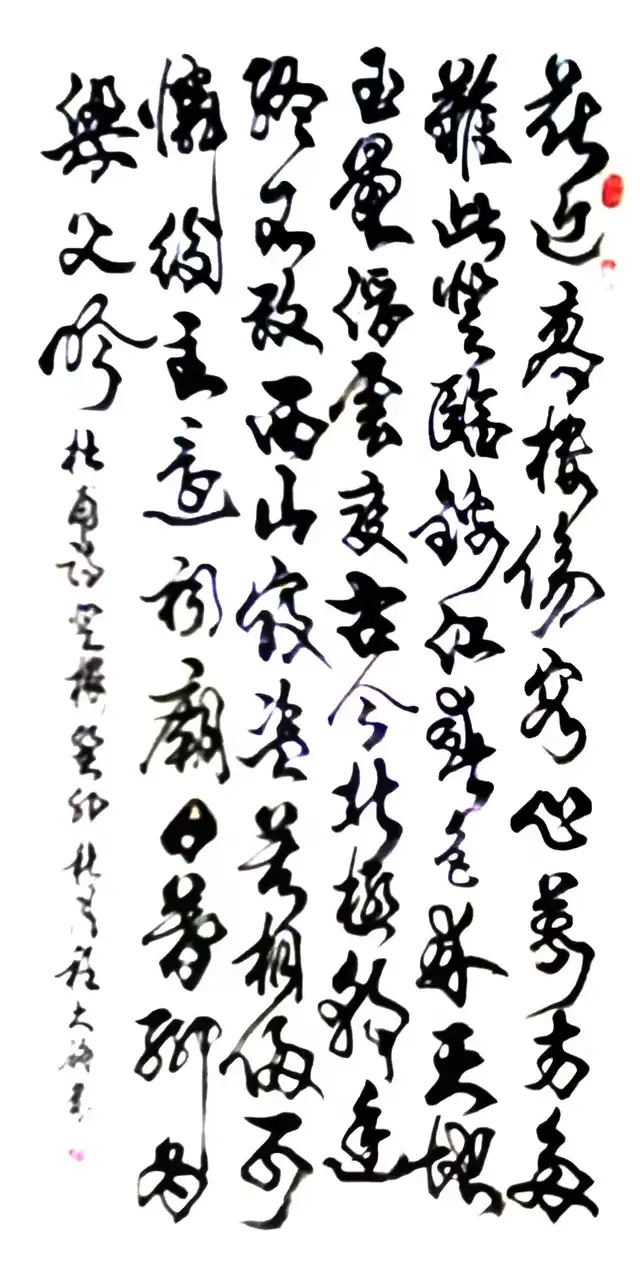 花近高樓傷客心萬方多
難此登臨錦江春色來天地
玉壘浮雲變古今北極朝廷
終不改西山寇盜莫相侵可
憐後主還祠廟日暮聊為
梁父吟 杜甫詩登樓癸卯秋月程大書